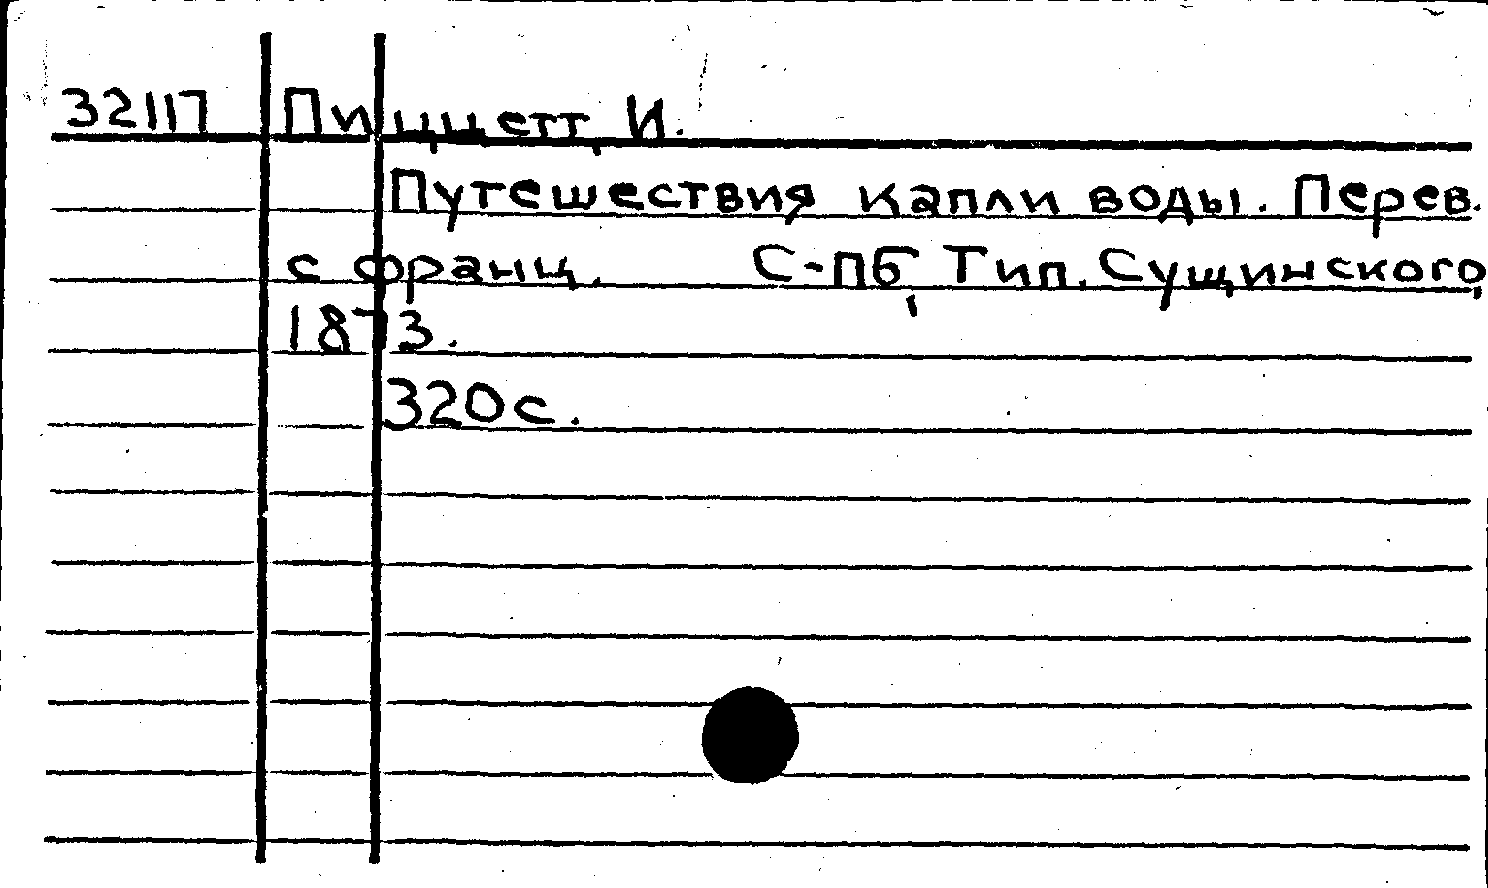 32117 Пиццетт, И.
Путешествия капли воды. Перев.
с франц. С-Пб, Тип. Сущинского,
1873.
320 с.